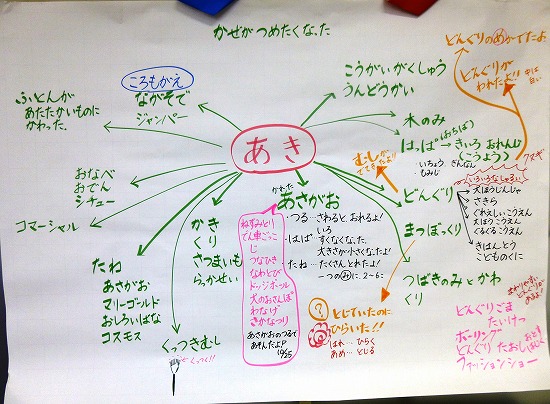 かぜがつめたくなった
どんぐりのめがでてたよ
ころもがえ
ながそで
ジャンパー
こうがいがくしゅう
うんどうかい
どんぐりが
われたよ!!
中は
白い
ふとんが
あたたかいものに
かわった.
木のみ
はっぱ
(おちば)
きいろ おれんじ
(こうよう)
・いちょう
・もみじ
ぎんなん
あき
むしが
でてきたよ!!
クヌギ
いろいろなしゅるい
おなべ
おでん
シチュー
コマーシャル
どんぐり
まつぼっくり
つばきのみとかわ
くり
きはんとう
こどものくに
かれた
あさがお
・つる…さわると、おれるよ!
いろ
・はっぱ…すくなくなった.
大きさが小さくなったよ!
・たね…たくさんとれたよ!
一つのみに、2~6こ
かき
くり
さつまいも
らっかせい
たね
あさがお
マリーゴールド
おしろいばな
コスモス
くっつきむし
くっつく!!
ねずみとり
でん車ごっこ
じ
つなひき
なわとび
ドッジボール
犬のおさんぽ
わなげ
さかなつり
あさがおのつるで
あそんだよ?
10/25
?
とじていたのに
ひらいた!!
はれ…ひらく
あめ…とじる
どんぐりごま
たいけつ
ボーリング
どんぐりたおし
ファッションショー